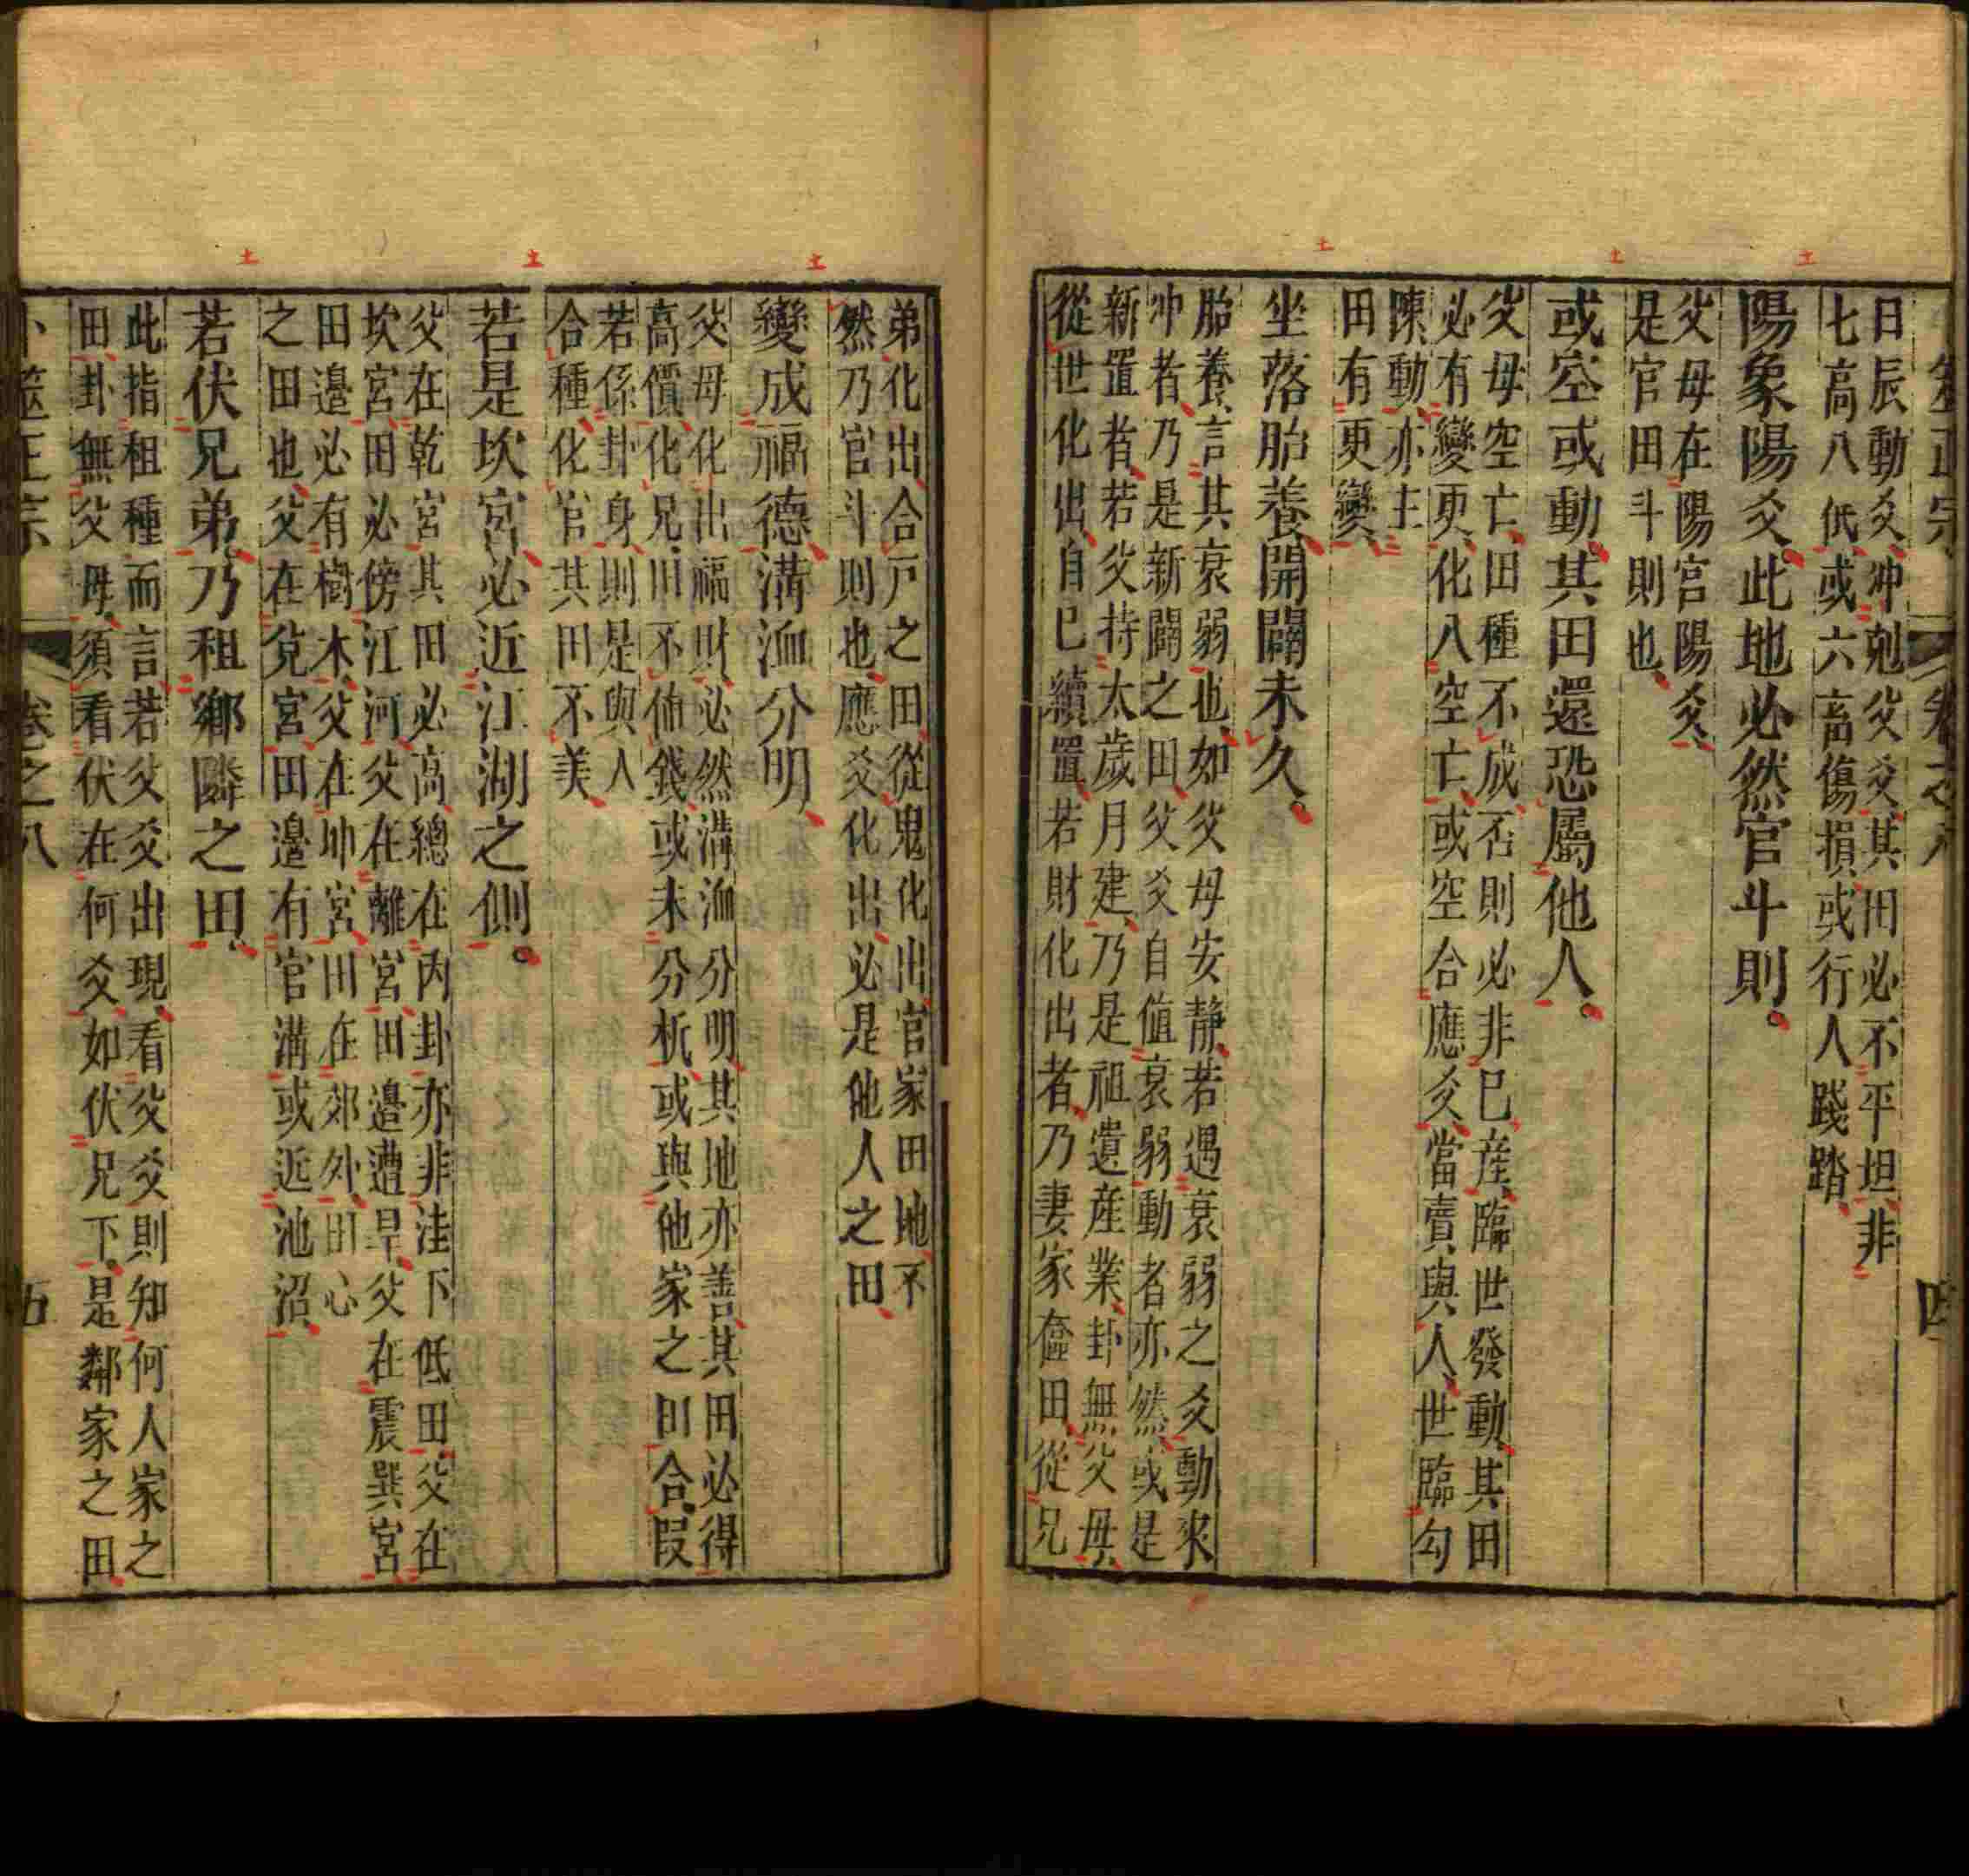 筮正宗
卷之八
四
日辰動爻冲剋父爻其田必不平坦非
七高八低或六畜傷損或行人踐踏
陽象陽爻此地必然官斗則。
父母在陽宮陽爻
是官田斗則也
或空或動其田還恐屬他人。
父母空亡田種不成否則必非己産臨世發動其田
必有變更化入空亡或空合應爻當賣與人世臨勾
陳動亦主
田有更變
坐落胎養開闢未久。
胎養言其衰弱也如父母安靜若遇衰弱之爻動來
冲者乃是新闢之田父爻自值衰弱動者亦然或是
新置者若父持太歲月建乃是祖遺産業卦無父母
從世化出自己續置若財化出者乃妻家奩田從兄
弟化出合戸之田從鬼化出官家田地不
然乃官斗則也應爻化出必是他人之田
變成福德溝洫分明
父母化出福財必然溝洫分明其地亦善其田必得
高價化兄田不値錢或未分析或與他家之田合段
若係卦身則是與人
合種化官其田不美
若是坎宮必近江湖之側。
父在乾宮其田必高總在内卦亦非洼下低田父在
坎宮田必傍江河父在離宮田邉遭旱父在震巽宮
田邉必有樹木父在坤宮田在郊外田心
之田也父在兌宮田邉有官溝或近池沼
若伏兄弟乃租鄉隣之田
此指租種而言若父爻出現看父爻則知何人家之
田卦無父母須看伏在何爻如伏兄下是鄰家之田
卜筮正宗
卷之八
五